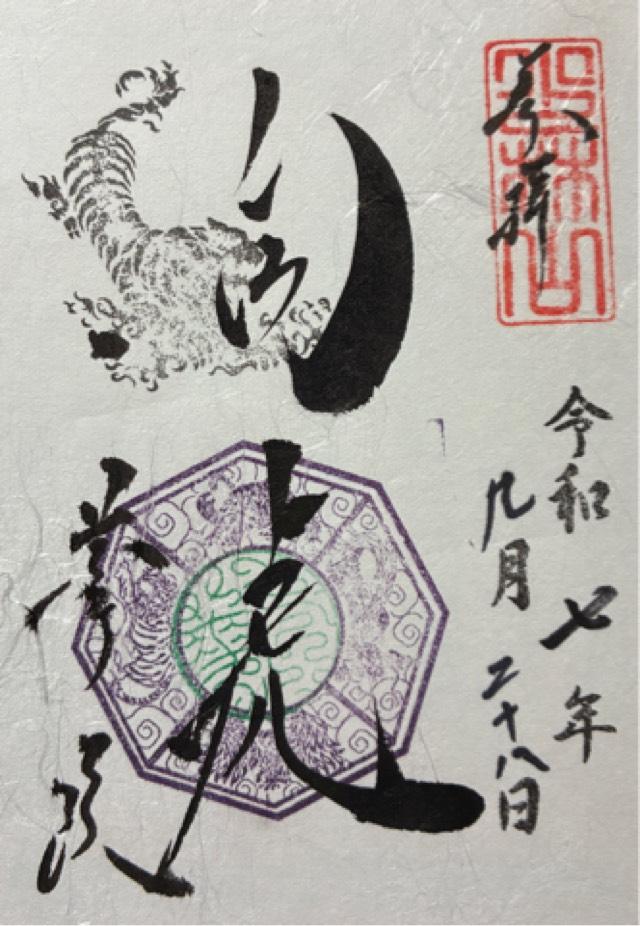 奉拝
令和七年
九月二十八日
白虎